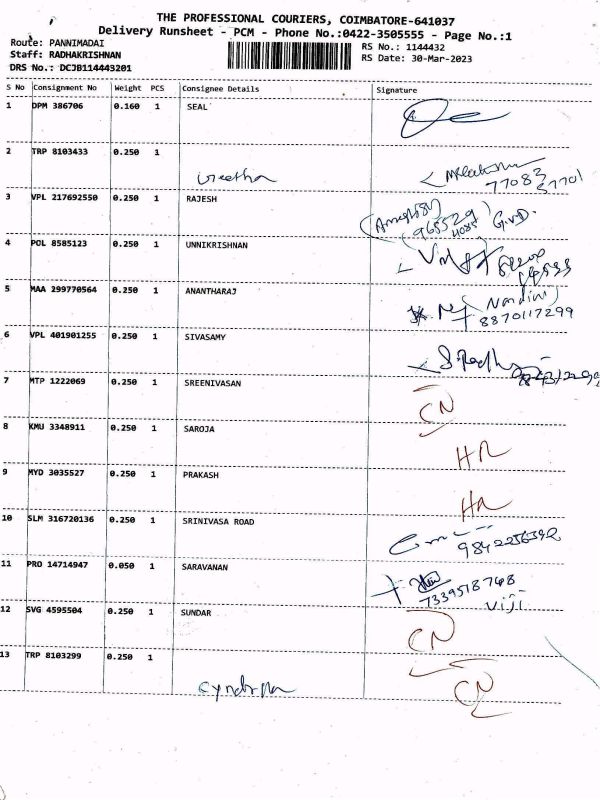 THE PROFESSIONAL COURIERS, COIMBATORE-641037
Delivery Runsheet - PCM - Phone No.:0422-3505555 - Page No.:1
Route: PANNIMADAI
Staff: RADHAKRISHNAN
DRS No.: DCJB114443201
RS No.: 1144432
RS Date: 30-Mar-2023
S No Consignment No Weight PCS Consignee Details Signature
1 DPM 386706 0.160 1 SEAL
2 TRP 8103433 0.250 1
77083
3 VPL 217692550 0.250 1 RAJESH
965529
4 POL 8585123 0.250 1 UNNIKRISHNAN
5 MAA 299770564 0.250 1 ANANTHARAJ
Nandini
8870117299
6 VPL 401901255 0.250 1 SIVASAMY
7 MTP 1222069 0.250 1 SREENIVASAN
CN
8 KMU 3348911 0.250 1 SAROJA
HR
9 MYD 3035527 0.250 1 PRAKASH
10 SLM 316720136 0.250 1 SRINIVASA ROAD
11 PRO 14714947 0.050 1 SARAVANAN
7339518768
Viji
12 SVG 4595504 0.250 1 SUNDAR
CN
13 TRP 8103299 0.250 1
CN